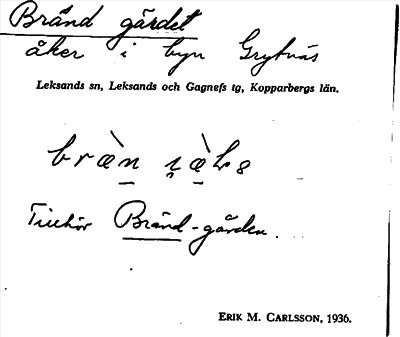 Bränd gärdet
åker i byn Grytnäs
Leksands sn, Leksands och Gagnefs tg, Kopparbergs län.
Tillhör Bränd-gården.
ERIK M. CARLSSON, 1936.